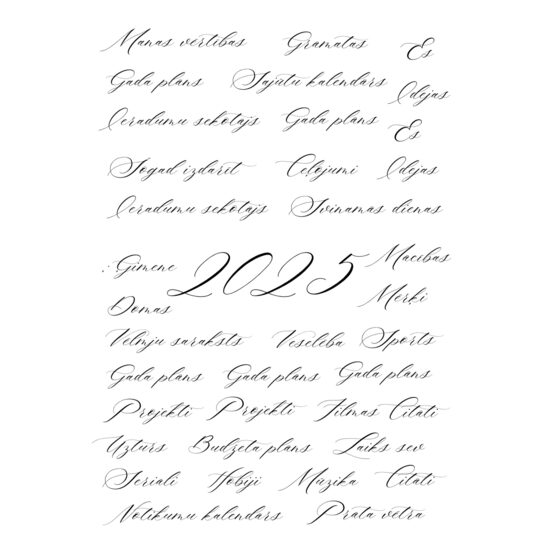 Manas vērtības Grāmatas Es
Gada plāns Sajūtu kalendārs
Idejas
Ieradumu sekotājs Gada plāns
Es
Šogad izdarīt Ceļojumi Idejas
Ieradumu sekotājs Svinamās dienas
Mācības
Ģimene 2025
Mērķi
Domas
Vēlmju saraksts Veselība Sports
Gada plāns Gada plāns Gada plāns
Projekti Projekti Filmas Citāti
Uzturs Budžeta plāns Laiks sev
Seriāli Hobiji Mūzika Citāti
Notikumu kalendārs Prāta vētra